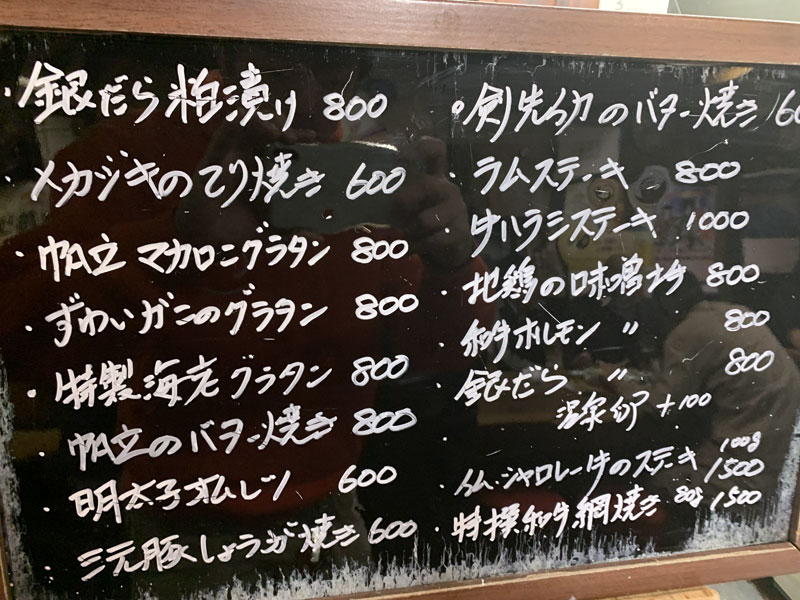 ・銀だら粕漬け 800
メカジキのてり焼き 600
・帆立マカロニグラタン 800
・ずわいがにのグラタン 800
・特製海老グラタン 800
・帆立のバター焼き 800
・明太子オムレツ 600
・三元豚しょうが焼き 600
・剣先イカのバター焼き 160
・ラムステーキ 800
・牛ハラミステーキ 1000
・地鶏の味噌 800
・和牛ホルモン 〃 800
・銀だら 〃 800
・温泉卵 +100
・シャロレー牛のステーキ 100g 1500
・特撰和牛網焼き 80g 1500